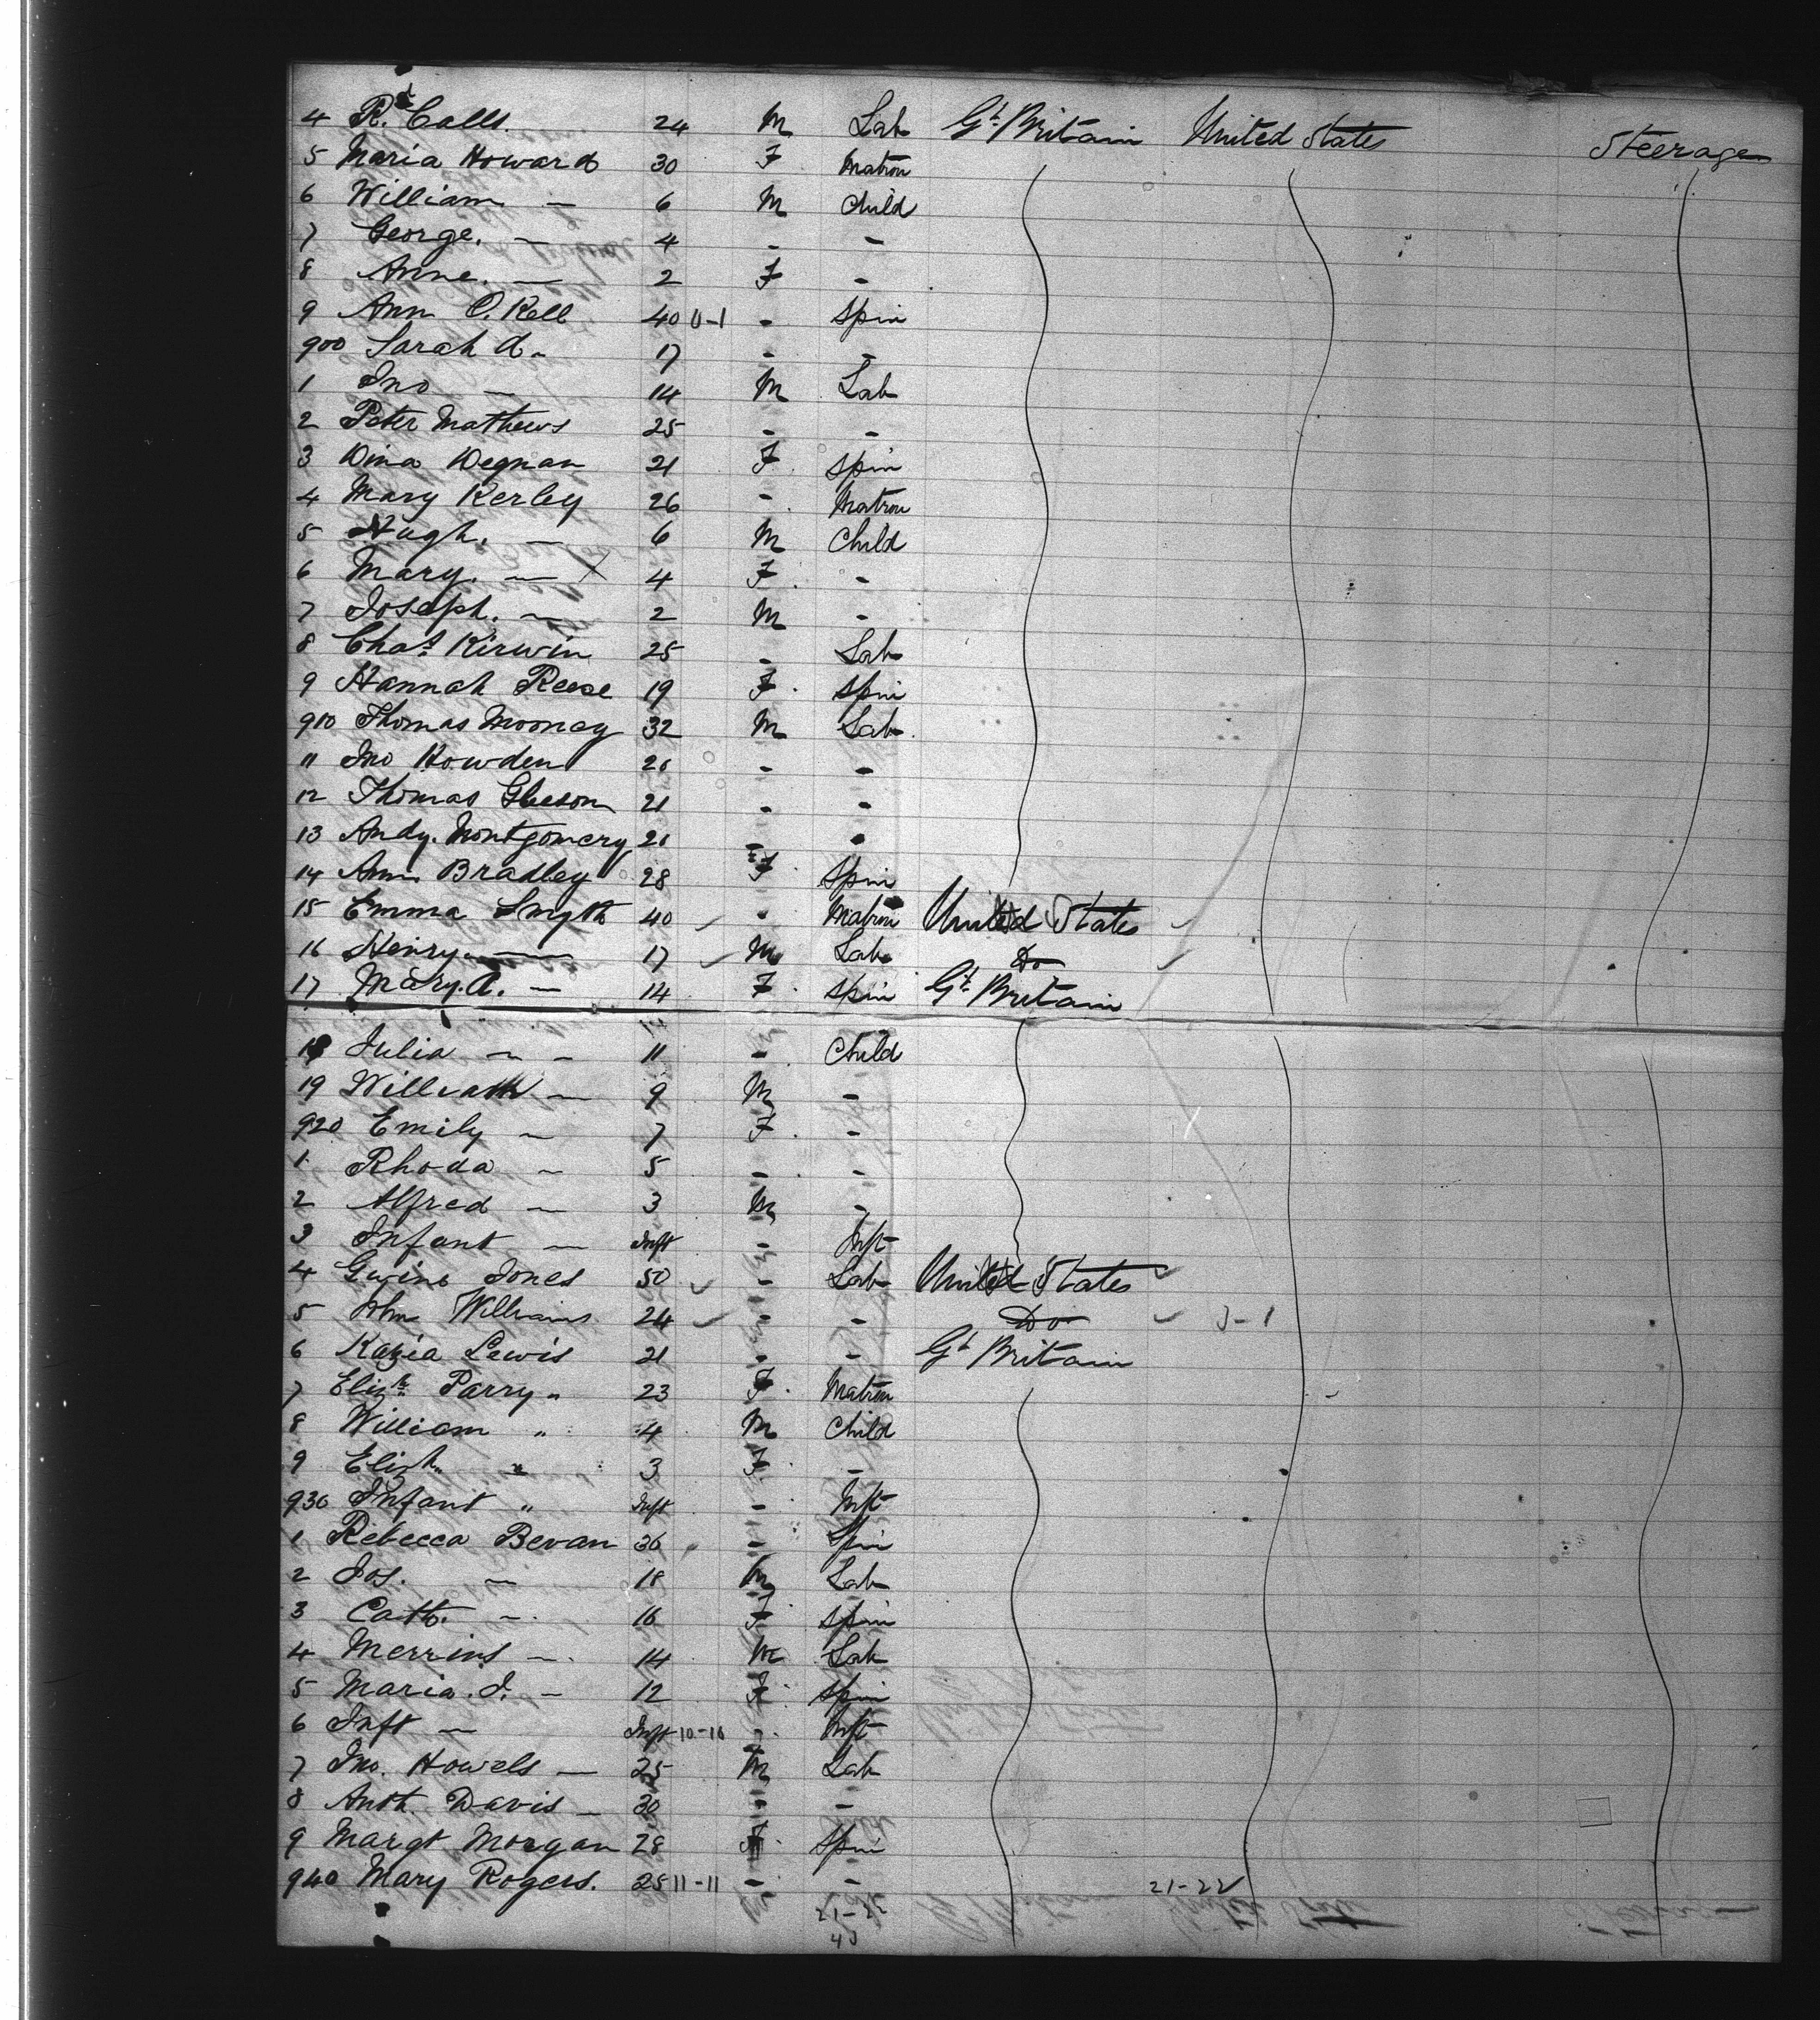 4 Rd. Calls. 24 M Lab Gt. Britain United States Steerage
5 Maria Howard 30 F. Matron
6 William — 6 M Child
7 George. — 4 - -
8 Anne. — 2 F -
9 Ann O. Kell 40 0-1 - Spin
900 Sarah A. - 17 - -
1 Jno — 14 M Lab
2 Peter Mathews 25 - -
3 Dina Degnan 21 F. Spin
4 Mary Kerley 26 - Matron
5 Hugh. — 6 M Child
6 Mary. — X 4 F. -
7 Joseph. — 2 M -
8 Chas. Kirwin 25 - Lab
9 Hannah Reese 19 F. Spin
910 Thomas Mooney 32 M Lab
11 Jno Howden 21 - -
12 Thomas Gleeson 21 - -
13 Andy. Montgomery 21 - -
14 Ann Bradley 28 F. Spin
15 Emma Smyth 40 ✓ - Matron United States ✓
16 Henry. — 17 ✓ M Lab Do ✓
17 Mary. A. — 14 F. Spin Gt. Britain
18 Julia — 11 - Child
19 William — 9 M -
920 Emily — 7 F. -
1 Rhoda — 5 - -
2 Alfred — 3 M -
3 Infant — Inft - Inft
4 Jones 50 ✓ - Lab United States ✓
5 Williams 24 ✓ - - Do ✓ J-1
6 Kazia Lewis 21 - - Gt. Britain
7 Elizh. Parry " 23 F. Matron
8 William " 4 M Child
9 Elizh. " 3 F. -
930 Infant " Inft - Inft
1 Rebecca Bevan 36 - Spin
2 Jos. — 18 M Lab
3 Cath. — 16 F. Spin
4 Merrins — 14 M Lab
5 Maria. J. — 12 F. Spin
6 Inft — Inft 10-16 - Inft
7 Jno. Howels — 25 M Lab
8 Anth. Davis — 30 - -
9 Margt Morgan 28 F. Spin
940 Mary Rogers. 25 11-11 - - 21-22
21-22